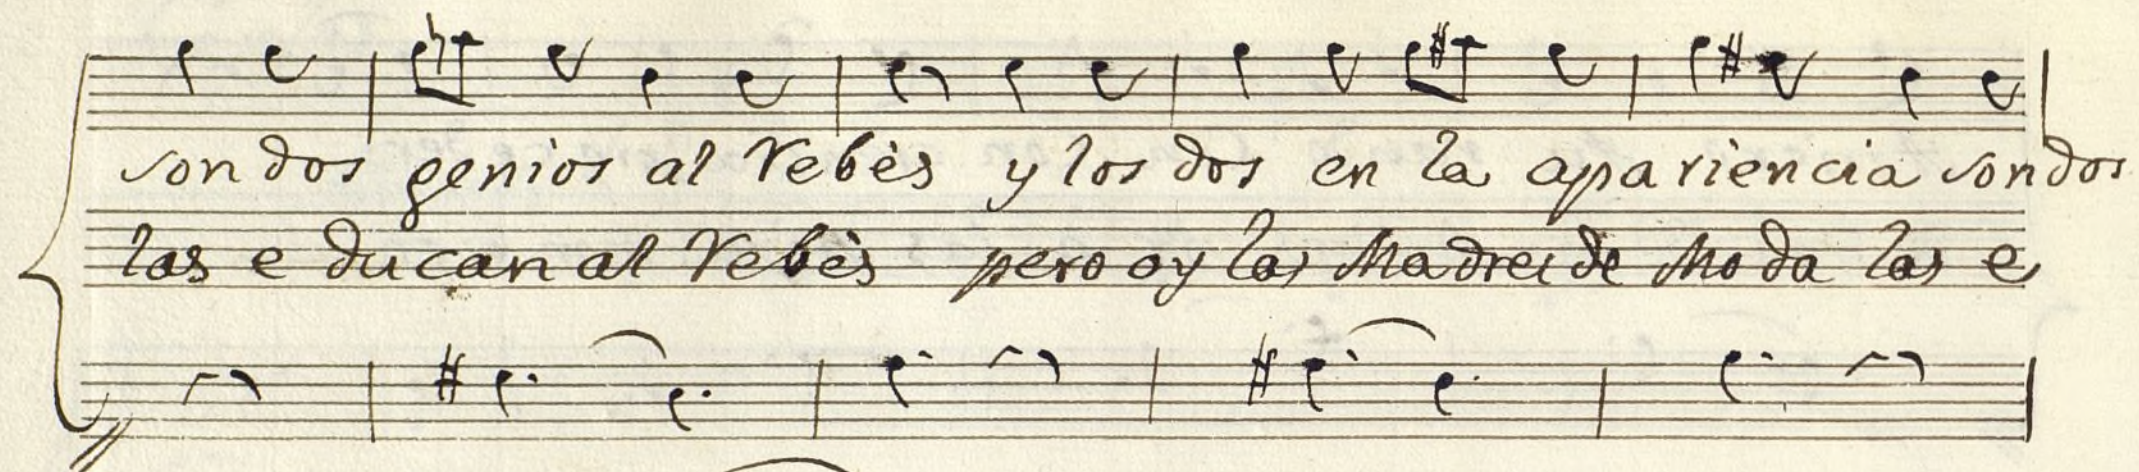 son dos genios al Rebès y los dos en la apariencia son dos
las e ducan al Rebès pero oy las Madres de Moda las e